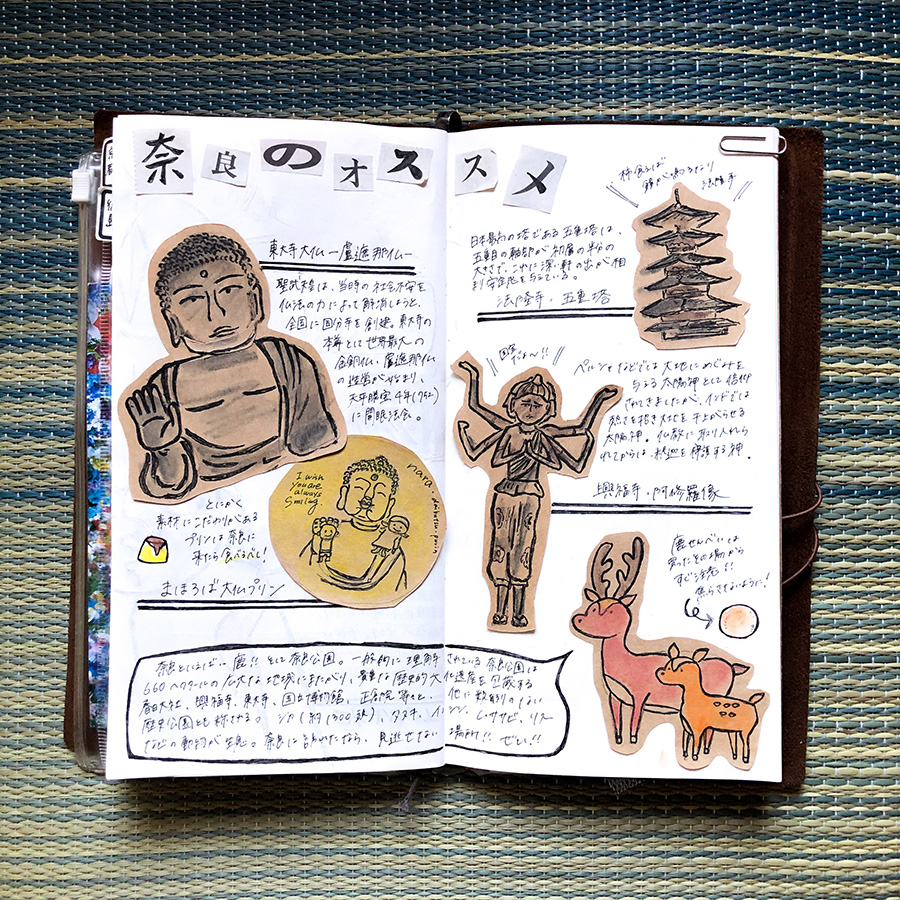 奈良のオススメ
東大寺大仏ー盧遮那仏ー
聖武様は、当時の社会不安を
仏法の力によって解消しようと、
全国に国分寺を創建。東大寺の
本尊として世界最大の
金銅仏、盧遮那仏
の造営が始まり、
天平勝宝4年(752)
に開眼法会。
I wish
you are
always
Smiling
nara.daibutsu.purin
とにかく
素材にこだわりがある
プリンは奈良に
来たら食べるべし!
まほろば大仏プリン
柿食えば
鐘が鳴るなり
法隆寺
日本最古の塔である五重塔は、
五重目の軸部が初層の半分の
大きさで、これに深い軒の出が相
まり安定感を与えている。
法隆寺・五重塔
国宝
だよ〜!!
ペルシャなどでは大地にめぐみを
与える太陽神として信仰
されてきましたが、インドでは
熱さを招き大地を干上がらせる
太陽神。仏教に取り入れら
れてからは、釈迦を守護する神。
興福寺・阿修羅像
鹿せんべいは
買ったその場から
すぐ注意!!
焦らさせないように!
奈良といえば… 鹿!! そして奈良公園。一般的に理解されている奈良公園は
660ヘクタールの広大な地域にまたがり、貴重な歴史的文化遺産を包蔵する
春日大社、興福寺、東大寺、国立博物館、正倉院等々と、他に数形のない
歴史公園とも称される。シカ(約1300頭)、タヌキ、イノシシ、ムササビ、リス
などの動物が生息。奈良に訪れたなら、見逃せない場所!! ぜひ!!